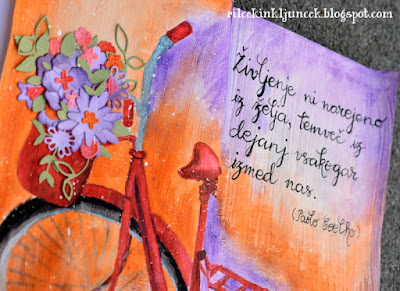 rilcekinkljuncek.blogspot.com
Življenje ni narejeno
iz želja, temveč iz
dejanj vsakogar
izmed nas.
(Paolo Coelho)